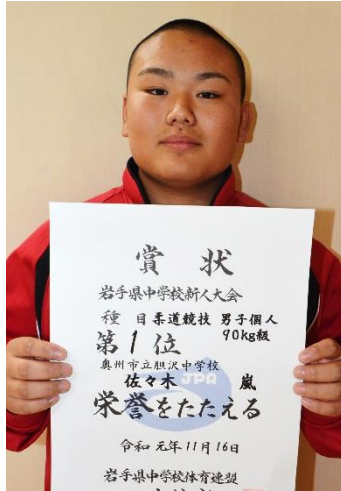 賞状
岩手県中学校新人大会
種目柔道競技 男子個人
90kg級
第1位
奥州市立胆沢中学校
佐々木 嵐
JPA
栄誉をたたえる
令和元年11月16日
岩手県中学校体育連盟